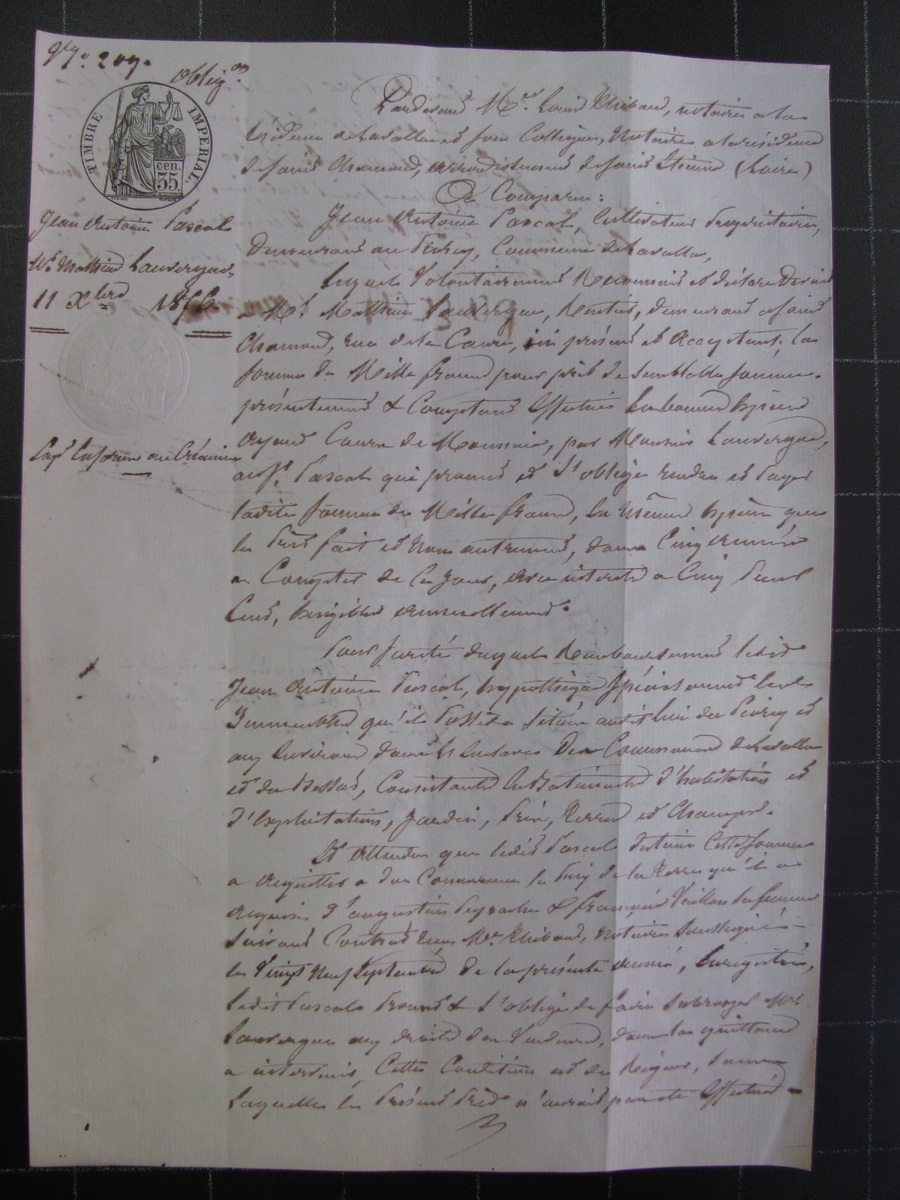 obligon
TIMBRE IMPERIAL.
35 cen.
Jean Antoine Pascal
Mr Mathieu Lauvergne
11 Xbre 1856
Pardevant Me Louis Thibaud, notaire a la
résidence de Lavalla et son Collègue, Notaire a la résidence
de Saint Chamond, arrondissement de Saint Etienne (Loire)
A Comparu:
Jean Antoine Pascal, Cultivateur propriétaire,
demeurant au, Commune de Lavalla,
Lequel Volontairement Reconnait et déclare Devoir
a Mr Mathieu Lauvergne, Rentier, demeurant a Saint
Chamond, rue de la, ici présent et Acceptant, la
somme de Mille francs pour prêt de semblable somme
présentement & Comptant Effectué En bonnes Espèces
ayant Cours de Monnaie, par Monsieur Lauvergne,
au Sr Pascal qui promet et S'oblige rendre et payer
ladite somme de Mille francs, En mêmes Espèces que
le prêt fait et non autrement, dans Cinq années
a Compter de ce Jour, avec intérêts a Cinq pour
Cent, Exigibles annuellement.
Pour sureté duquel Remboursement ledit
Jean Antoine Pascal, hypothèque spécialement les
Immeubles qu'il possède situés audit lieu du et
aux Environs dans les Communes de Lavalla
et du, Consistant En Bâtiments d'habitation et
d'Exploitation, Jardin, Prés, Terres et Champs.
Et attendu que ledit Pascal destine cette somme
a acquitter a due Concurrence le prix de la Terre qu'il a
acquise d'augustin & françoise sa femme
suivant Contrat reçu Me Thibaud, notaire Soussigné
le Vingt Neuf Septembre de la présente année, Enregistré,
ledit Pascal promet & S'oblige de faire subroger Mr
Lauvergne aux droits des Vendeurs, dans la quittance
a intervenir, Cette Condition est de Rigueur, sans
laquelle le Présent Prêt n'aurait pas été Effectué